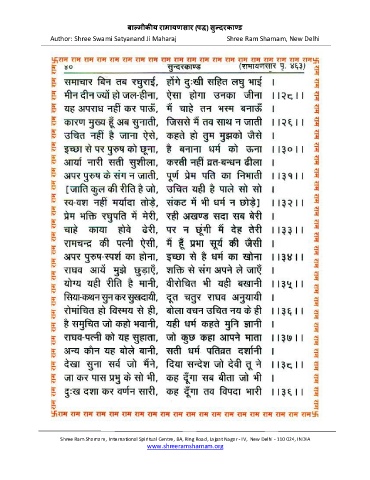 बाल्मीकीय रामायणसार (पद्य) सुन्दरकाण्ड
Author: Shree Swami Satyanand Ji Maharaj Shree Ram Sharnam, New Delhi
४० सुन्दरकाण्ड (रामायणसार पृ. ४६३)
समाचार बिन तब रघुराई, होंगे दुःखी सहित लघु भाई ।
मीन दीन ज्यों हो जल-हीना, ऐसा होगा उनका जीना ।।२८।।
यह अपराध नहीं कर पाऊँ, मैं चाहे तन भस्म बनाऊँ ।
कारण मुख्य हूँ अब सुनाती, जिससे मैं तव साथ न जाती ।।२९।।
उचित नहीं है जाना ऐसे, कहते हो तुम मुझको जैसे ।
इच्छा से पर पुरुष को छूना, है बनाना धर्म को ऊना ।।३०।।
आर्या नारी सती सुशीला, करती नहीं व्रत-बन्धन ढीला ।
अपर पुरुष के संग न जाती, पूर्ण प्रेम पति का निभाती ।।३१।।
[जाति कुल की रीति है जो, उचित यही है पाले सो सो ।
स्व-वश नहीं मर्यादा तोड़े, संकट में भी धर्म न छोड़े] ।।३२।।
प्रेम भक्ति रघुपति में मेरी, रही अखण्ड सदा सब बेरी ।
चाहे काया होवे ढेरी, पर न छूंगी मैं देह तेरी ।।३३।।
रामचन्द्र की पत्नी ऐसी, मैं हूँ प्रभा सूर्य की जैसी ।
अपर पुरुष-स्पर्श का होना, इच्छा से है धर्म का खोना ।।३४।।
राघव आयें मुझे छुड़ाएँ, शक्ति से संग अपने ले जाएँ ।
योग्य यही रीति है मानी, वीरोचित भी यही बखानी ।।३५।।
सिया-कथन सुन कर सुखदायी, दूत चतुर राघव अनुयायी ।
रोमांचित हो विस्मय से ही, बोला वचन उचित नय के ही ।।३६।।
है समुचित जो कहो भवानी, यही धर्म कहते मुनि ज्ञानी ।
राघव-पत्नी को यह सुहाता, जो कुछ कहा आपने माता ।।३७।।
अन्य कोन यह बोले बानी, सती धर्म पतिव्रत दर्शानी ।
देखा सुना सर्व जो मैंने, दिया सन्देश जो देवी तू ने ।।३८।।
जा कर पास प्रभु के सो भी, कह दूँगा सब बीता जो भी ।
दुःख दशा कर वर्णन सारी, कह दूँगा तव विपदा भारी ।।३९।।
Shree Ram Sharnam, International Spiritual Centre, 8A, Ring Road, Lajpat Nagar - IV, New Delhi - 110 024, INDIA
www.shreeramsharnam.org